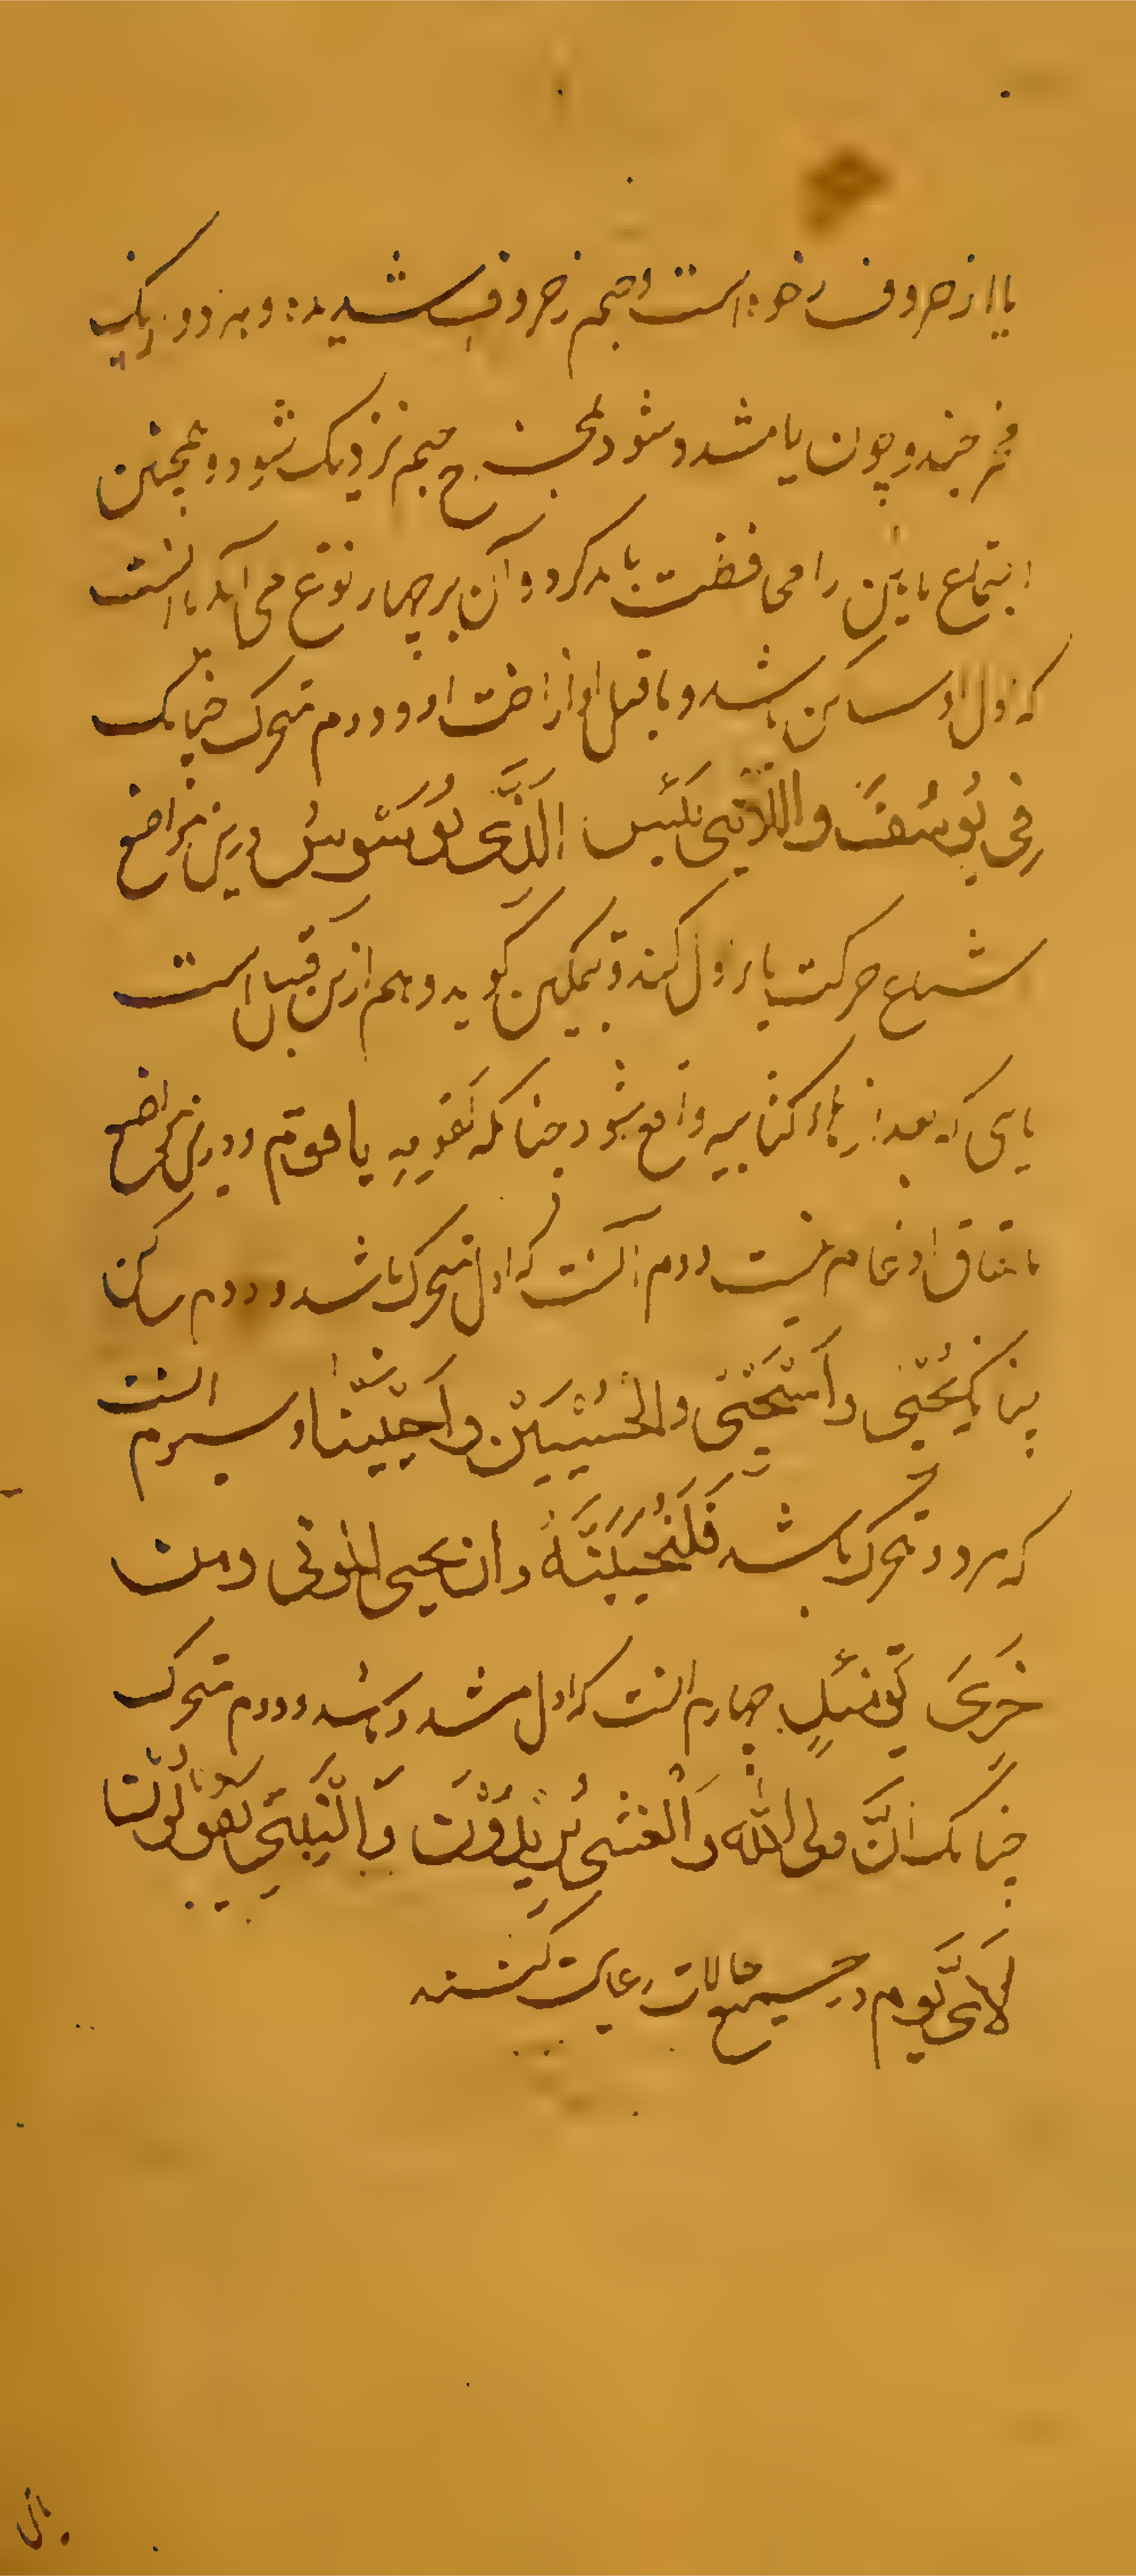 یا از حروف رخوه است و جیم از حروف شدیده و هر دو از یک
مخرج‌اند و چون یا مشدد شود بمخرج جیم نزدیک شود و همچنین
اجتماع یائین را محافظت باید کرد و آن بر چهار نوع می‌آید یا انست
که اول او ساکن باشد و ماقبل او از اخت او و دوم متحرک چنانک
فِی یُوسُفَ وَاللّٰئِی یَئِسْنَ الَّذِی یُوَسْوِسُ درین مواضع
اشباع حرکت یاء اول کند و تمکین گوید و هم ازین قبیل است
یای که بعد از هاء کنایه واقع شود چنانکه لقومِهِ یا قوم و درین مواضع
باتفاق ادغام نیست دوم آنست که اول متحرک باشد و دوم ساکن
چنانک یُحْیِی وَاَسْتَحْیِی وَالْحُسْنَیَیْنِ وَاَحْیَیْنَا و سیوم انست
که هر دو متحرک باشد فَلَنُحْیِیَنَّهُ و ان یحیی الموتی و من
خِزْیِ یَوْمَئِذٍ چهارم انست که اول مشدد باشد و دوم متحرک
چنانک اِنَّ وَلِیِّیَ اللّٰه وَالْعَشِیِّ یُرِیدُونَ وَالنَّبِیِّ یَقُولُونَ
لِاَیِّ یَوْمٍ در جمیع حالات رعایت کنند